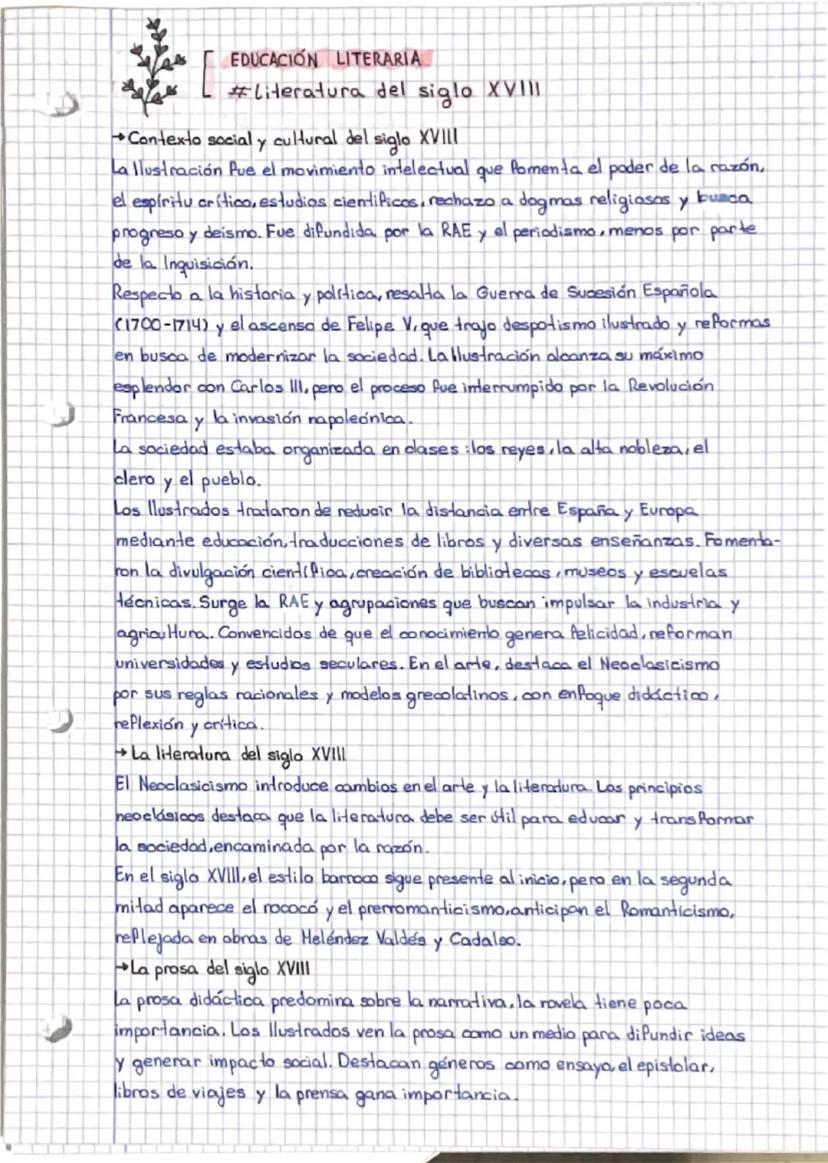 EDUCACIÓN LITERARIA
#Literatura del siglo XVIII
→Contexto social y cultural del siglo XVIII
La Ilustración fue el movimiento intelectual que fomenta el poder de la razón,
el espíritu crítico, estudios científicos, rechazo a dogmas religiosos y busca
progreso y deísmo. Fue difundida por la RAE y el periodismo, menos por parte
de la Inquisición.
Respecto a la historia y política, resalta la Guerra de Sucesión Española
(1700-1714) y el ascenso de Felipe V, que trajo despotismo ilustrado y reformas
en busca de modernizar la sociedad. La Ilustración alcanza su máximo
esplendor con Carlos III, pero el proceso fue interrumpido por la Revolución
Francesa y la invasión napoleónica.
La sociedad estaba organizada en clases: los reyes, la alta nobleza, el
clero y el pueblo.
Los Ilustrados trataron de reducir la distancia entre España y Europa
mediante educación, traducciones de libros y diversas enseñanzas. Fomenta-
ron la divulgación científica, creación de bibliotecas, museos y escuelas
técnicas. Surge la RAE y agrupaciones que buscan impulsar la industria y
agricultura. Convencidos de que el conocimiento genera felicidad, reforman
universidades y estudios seculares. En el arte, destaca el Neoclasicismo
por sus reglas racionales y modelos grecolatinos, con enfoque didáctico,
reflexión y crítica.
→La literatura del siglo XVIII
El Neoclasicismo introduce cambios en el arte y la literatura. Los principios
neoclásicos destaca que la literatura debe ser útil para educar y transformar
la sociedad, encaminada por la razón.
En el siglo XVIII, el estilo barroco sigue presente al inicio, pero en la segunda
mitad aparece el rococó y el prerromanticismo, anticipan el Romanticismo,
reflejada en obras de Meléndez Valdés y Cadalso.
→La prosa del siglo XVIII
La prosa didáctica predomina sobre la narrativa, la novela tiene poca
importancia. Los Ilustrados ven la prosa como un medio para difundir ideas
y generar impacto social. Destacan géneros como ensayo, el epistolar,
libros de viajes y la prensa gana importancia.